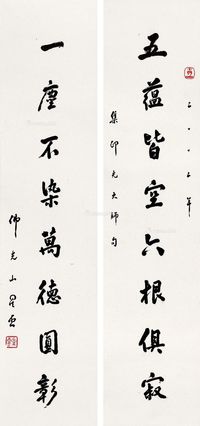 五蘊皆空六根俱寂
二〇〇七年
集印光大師句
一塵不染萬德圓彰
佛光山星雲